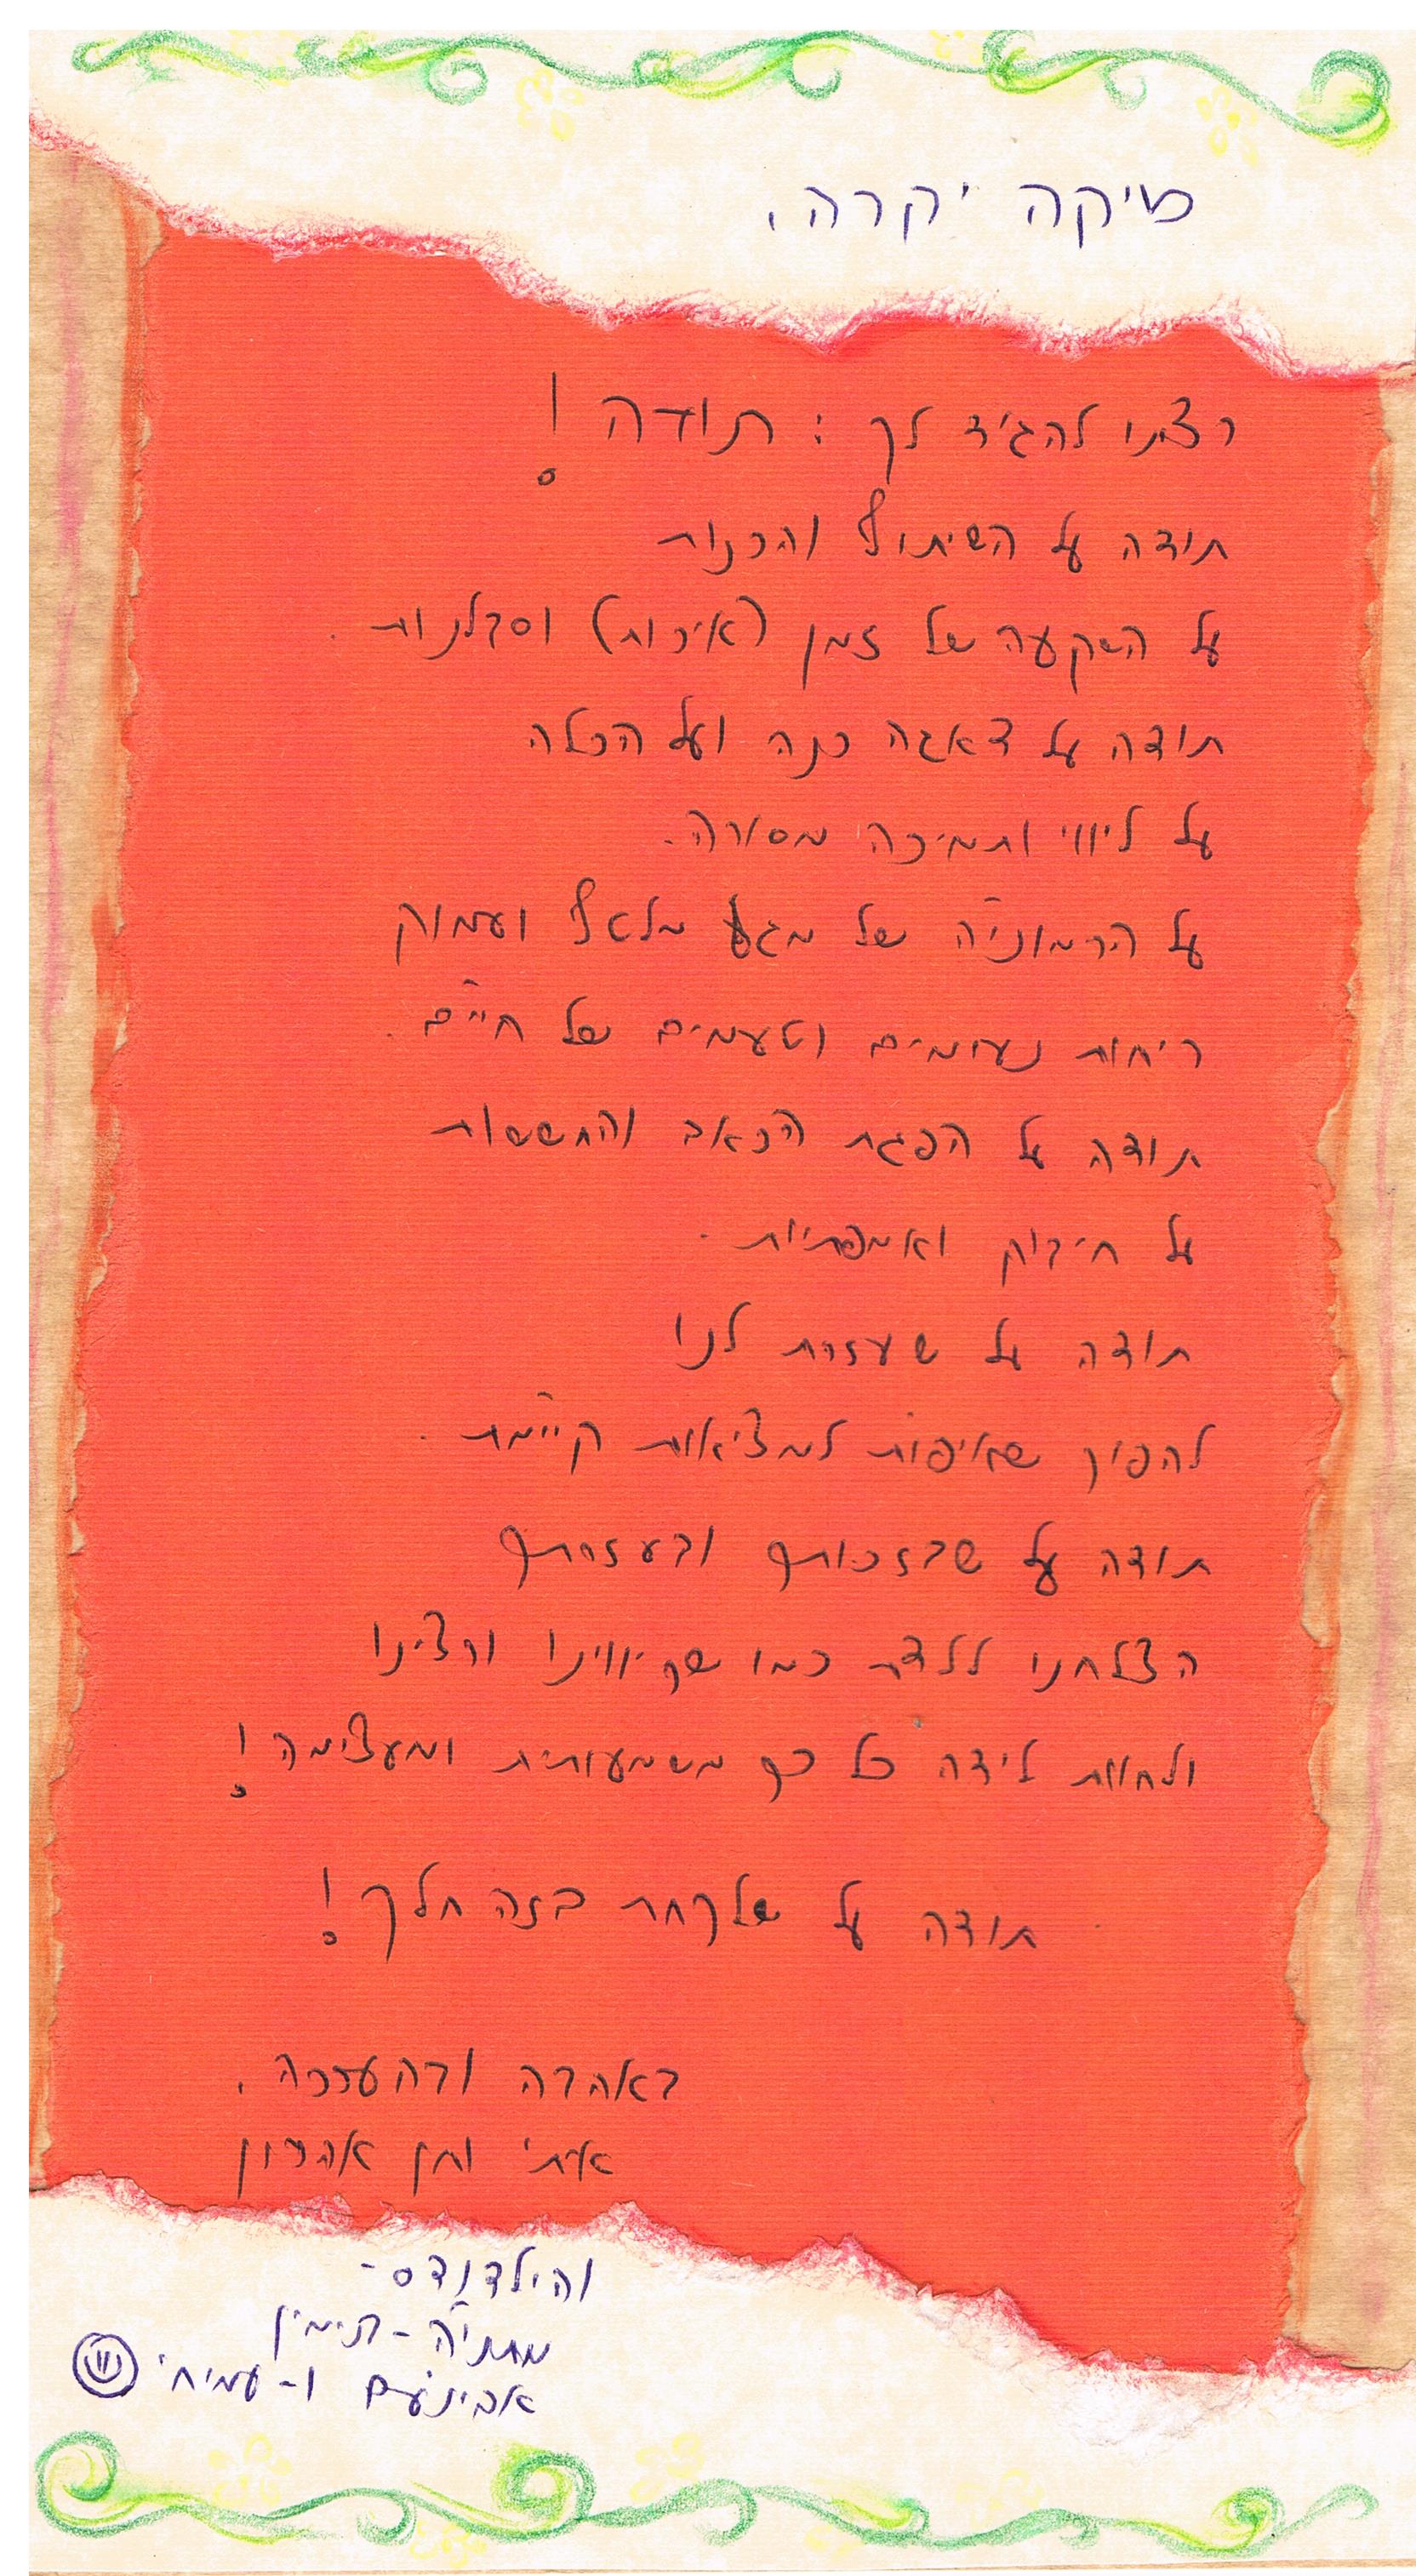 מיקה יקרה,
רצינו להגיד לך : תודה !
תודה על השיתוף והכנות
על השקעה של זמן (איכות) וסבלנות .
תודה על דאגה כנה ועל הכלה
על ליווי ותמיכה מסורה.
על הרמוניה של מגע מלטף ועמוק
ריחות נעימים וטעמים של חיים .
תודה על הפגת הכאב והחששות
על חיבוק ואמפתיות .
תודה על שעזרת לנו
להפוך שאיפות למציאות קיימת .
תודה על שבזכותך ובעזרתך
הצלחנו ללדת כמו שקיווינו ורצינו
ולחוות לידה כל כך משמעותית ומעצימה !
תודה על שלקחת בזה חלק !
באהבה ובהערכה ,
איתי וחן אהרון
והילדודס -
מתניה -
אבינעם ו- עמיחי